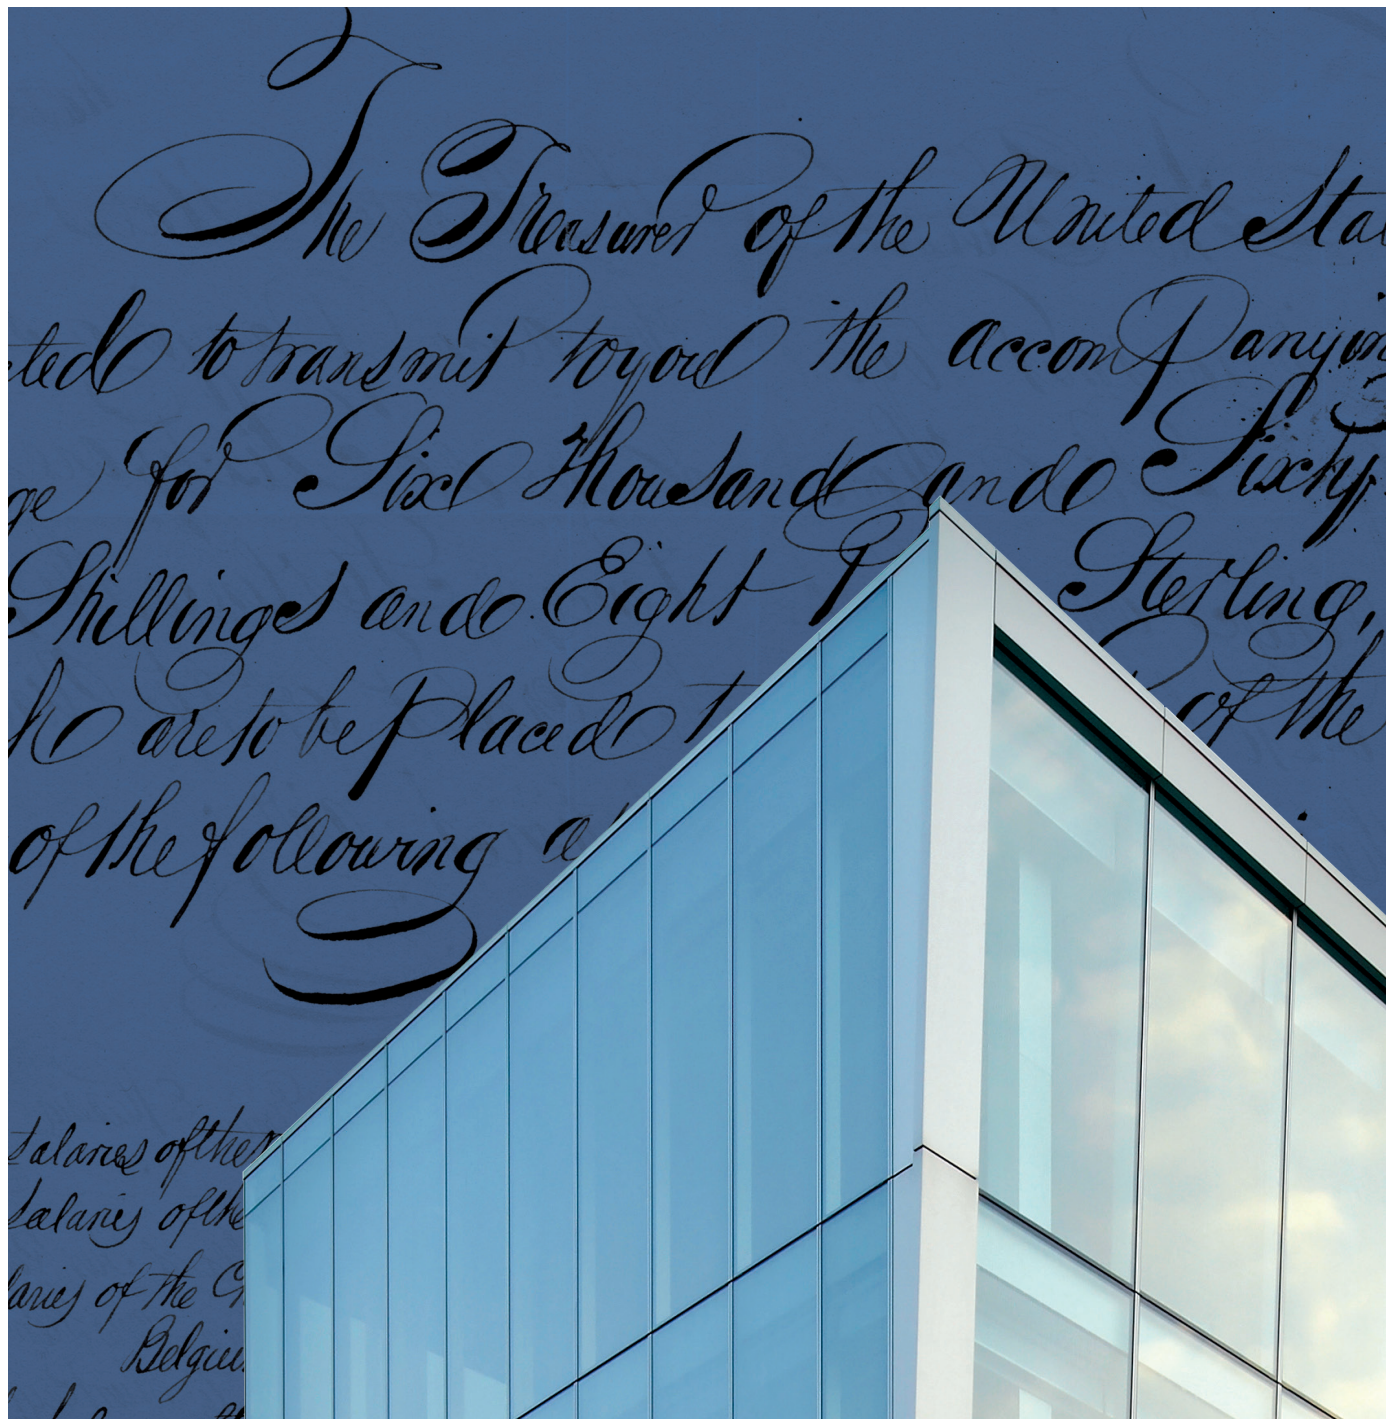 The Treasurer of the United Sta
cted to transmit to you the accompanying
ge for Six Thousand and Sixty
Shillings and Eight P Sterling,
h are to be placed t of the
of the following a
Salaries of the
Salaries of the
laries of the C
Belgiu